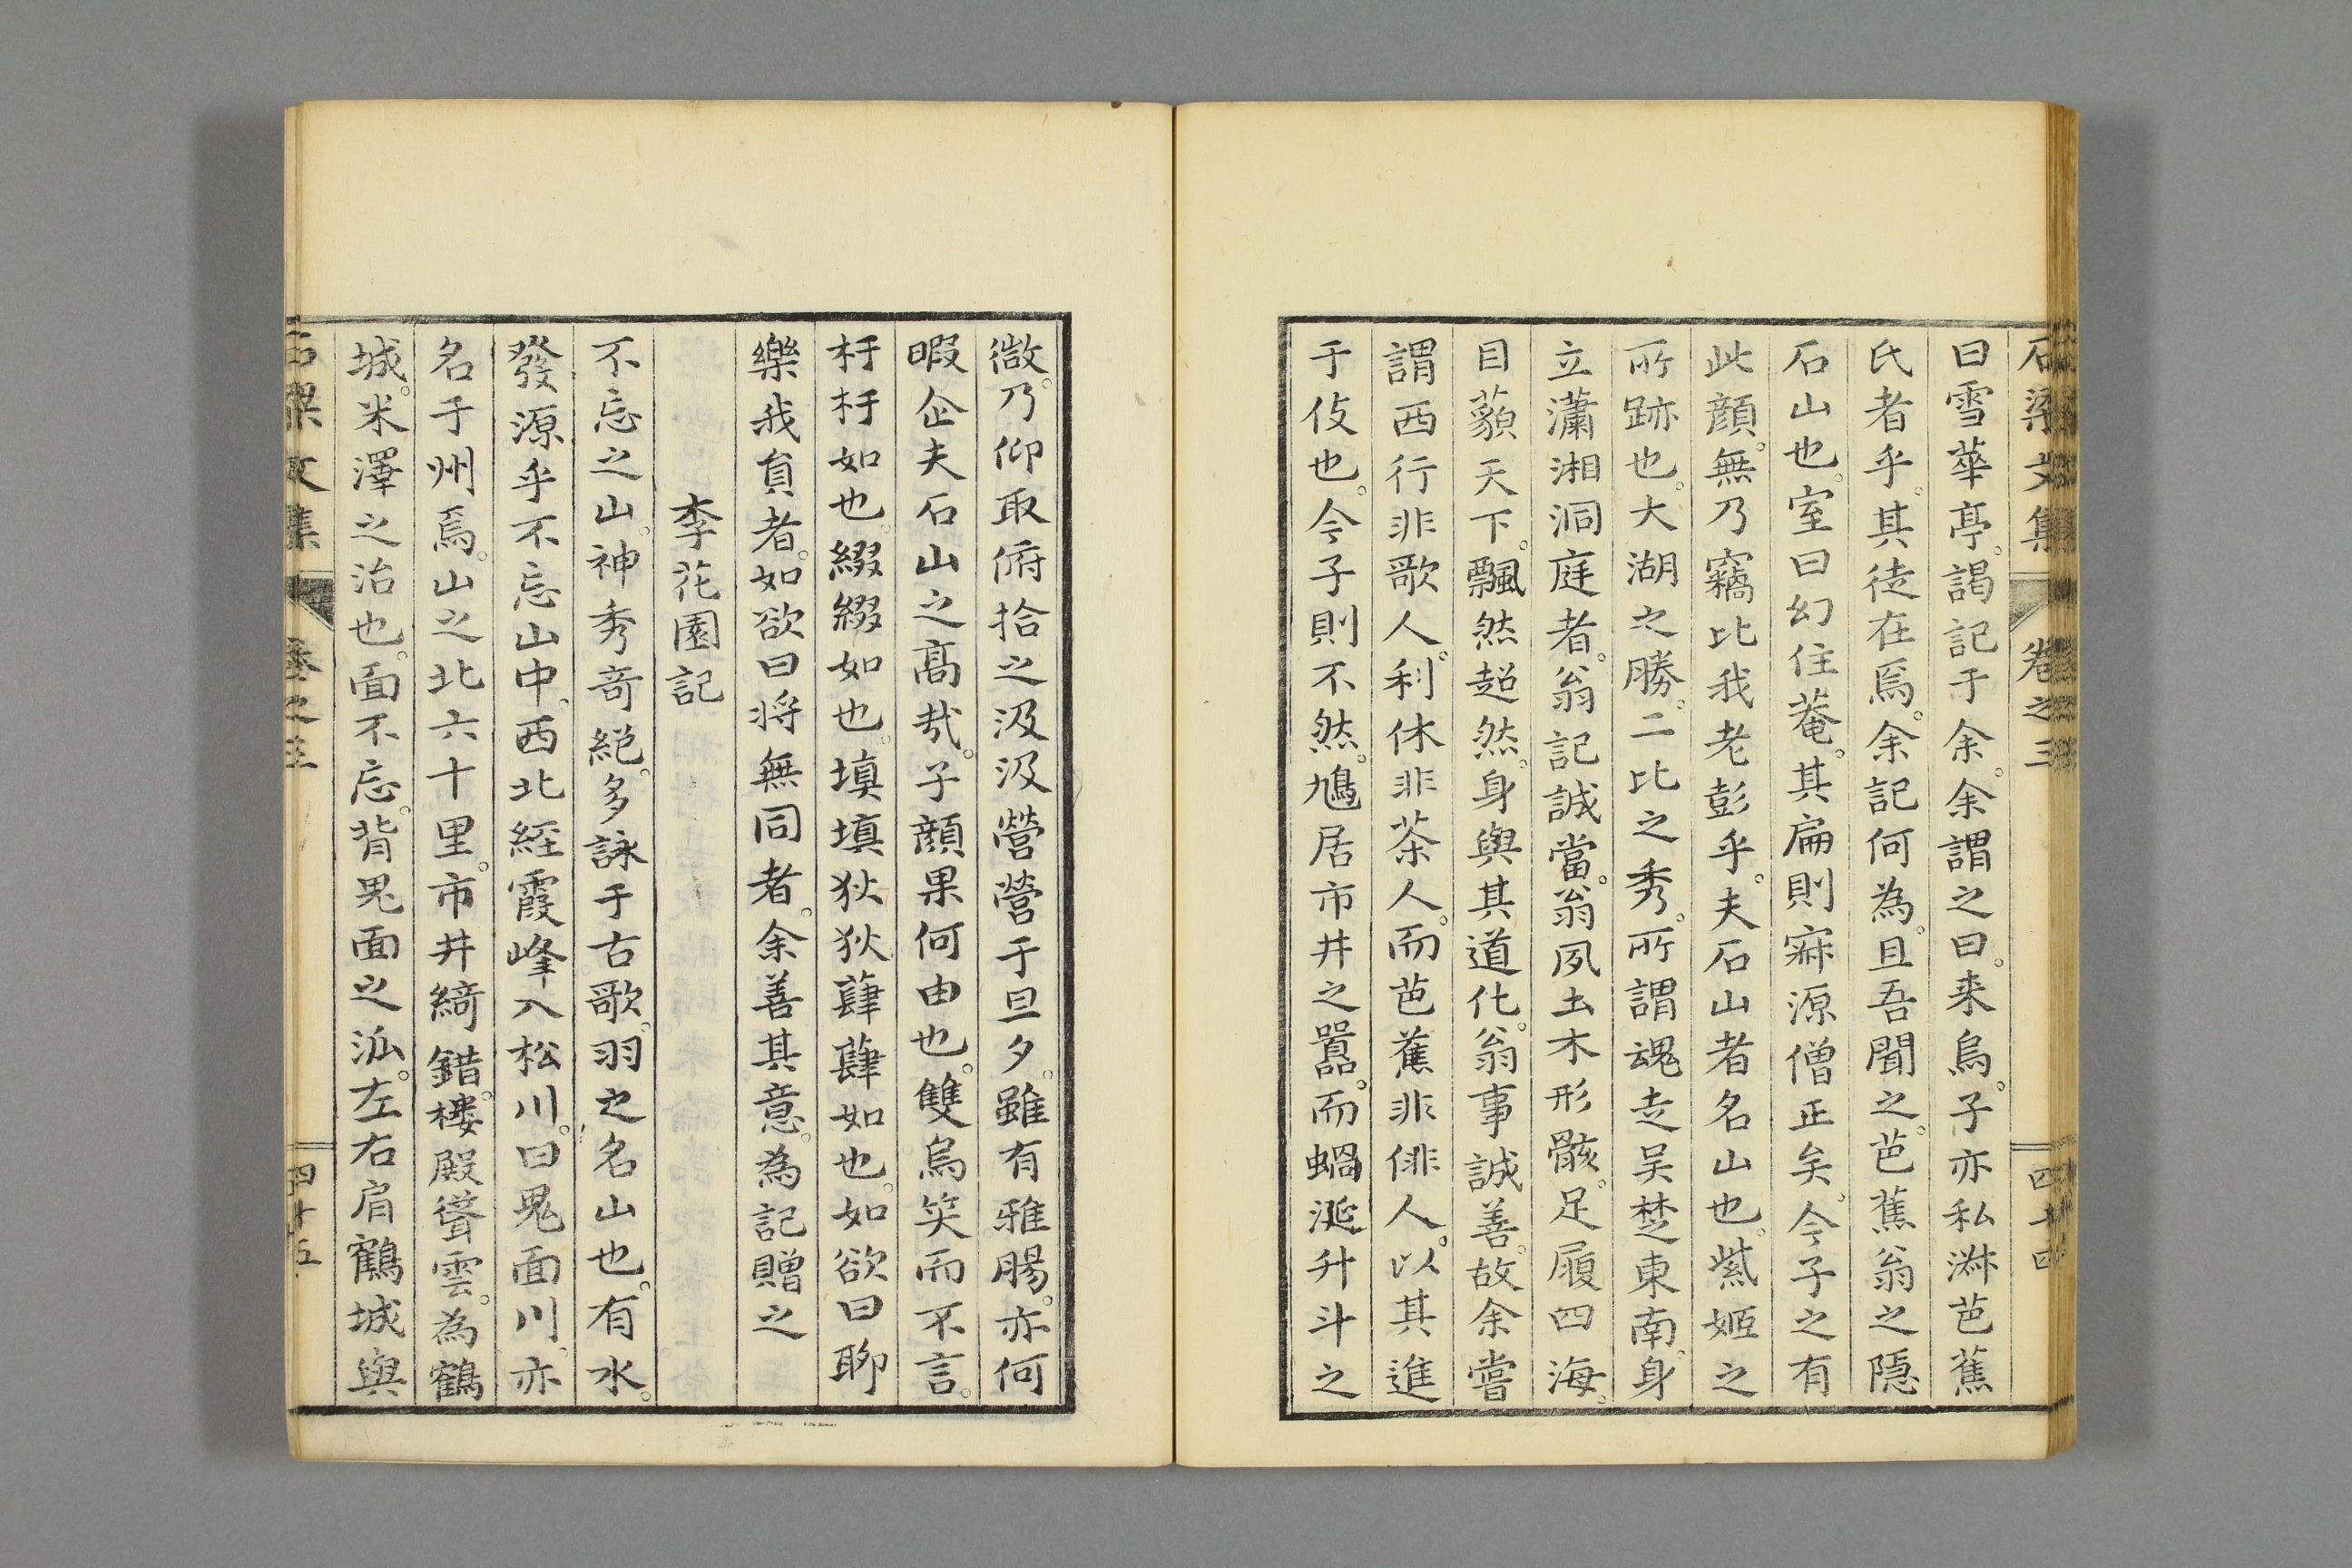 石梁文集 卷之三 四十四
曰雪華亭。謁記于余。余謂之曰。来烏。子亦私淋芭蕉
氏者乎。其徒在焉。余記何為。且吾聞之。芭蕉翁之隠
石山也。室曰幻住菴。其扁則寂源僧正矣。今子之有
此顔。無乃竊比我老彭乎。夫石山者名山也。紫姬之
所跡也。大湖之勝。二比之秀。所謂魂走吴楚東南。身
立瀟湘洞庭者。翁記誠當。翁夙土木形骸。足履四海。
目藐天下。飄然超然。身與其道化。翁事誠善。故余嘗
謂西行非歌人。利休非茶人。而芭蕉非俳人。以其進
于伎也。今子則不然。鳩居市井之囂。而蝸涎升斗之
微。乃仰取俯拾之汲汲營營于旦夕。雖有雅腸。亦何
暇企夫石山之髙㢤。子顔果何由也。雙烏笑而不言。
杅杅如也。綴綴如也。填填狄狄肆肆如也。如欲曰聊
樂我貟者。如欲曰将無同者。余善其意。為記贈之
李花園記
不忘之山。神秀竒絕。多詠于古歌。羽之名山也。有水。
發源乎不忘山中。西北経霞峰入松川。曰鬼面川。亦
名于州焉。山之北六十里。市井綺錯。樓殿聳雲。為鶴
城。米澤之治也。面不忘。背鬼面之泒。左右肩鶴城與
石梁文集 卷之三 四十五